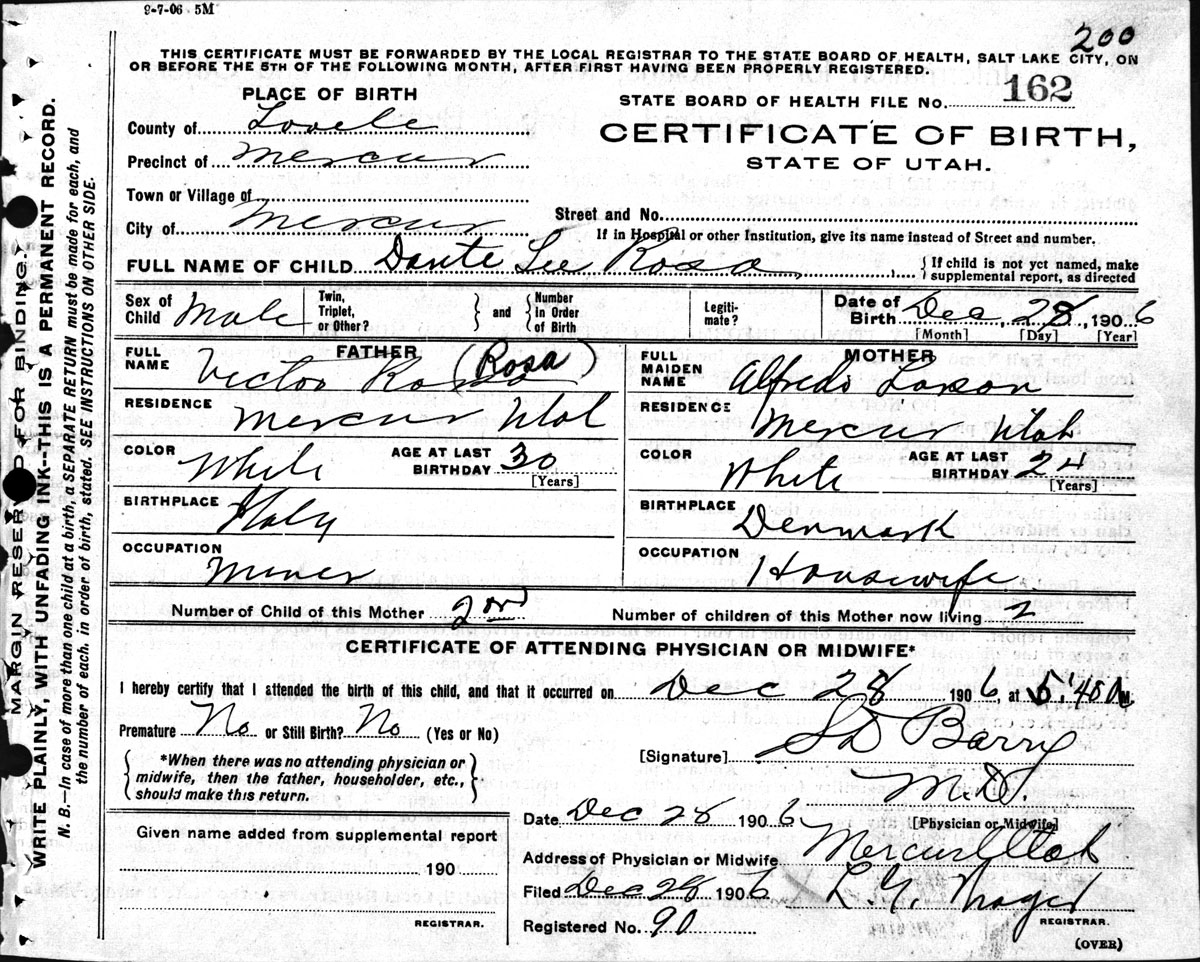 9-7-06 5M
200
THIS CERTIFICATE MUST BE FORWARDED BY THE LOCAL REGISTRAR TO THE STATE BOARD OF HEALTH, SALT LAKE CITY, ON
OR BEFORE THE 5TH OF THE FOLLOWING MONTH, AFTER FIRST HAVING BEEN PROPERLY REGISTERED.
PLACE OF BIRTH
STATE BOARD OF HEALTH FILE No. 162
County of
CERTIFICATE OF BIRTH,
Precinct of Mercur
STATE OF UTAH.
Town or Village of
City of Mercur
Street and No.
If in Hospital or other Institution, give its name instead of Street and number.
FULL NAME OF CHILD Dante Lee Rosa
{If child is not yet named, make
supplemental report, as directed
Sex of Child Male
Twin, Triplet, or Other?
{ and {
Number in Order of Birth
Legitimate?
Date of Birth Dec, 28, 1906
[Month] [Day] [Year]
FATHER
FULL NAME Victor (Rosa)
RESIDENCE Mercur Utah
COLOR White
AGE AT LAST BIRTHDAY 30
[Years]
BIRTHPLACE Italy
OCCUPATION Miner
MOTHER
FULL MAIDEN NAME
RESIDENCE Mercur Utah
COLOR White
AGE AT LAST BIRTHDAY 24
[Years]
BIRTHPLACE Denmark
OCCUPATION Housewife
Number of Child of this Mother 2nd
Number of children of this Mother now living 2
CERTIFICATE OF ATTENDING PHYSICIAN OR MIDWIFE*
I hereby certify that I attended the birth of this child, and that it occurred on Dec 28 1906, at
Premature No or Still Birth? No (Yes or No)
[Signature] Barry
M.D.
*When there was no attending physician or
midwife, then the father, householder, etc.,
should make this return.
Date Dec 28 1906
[Physician or Midwife]
Given name added from supplemental report
190
REGISTRAR.
Address of Physician or Midwife Mercur Utah
Filed Dec 28 1906
REGISTRAR.
Registered No. 90
(OVER)
MARGIN RESERVED FOR BINDING.
WRITE PLAINLY, WITH UNFADING INK--THIS IS A PERMANENT RECORD.
N. B.—In case of more than one child at a birth, a SEPARATE RETURN must be made for each, and
the number of each. in order of birth, stated. SEE INSTRUCTIONS ON OTHER SIDE.